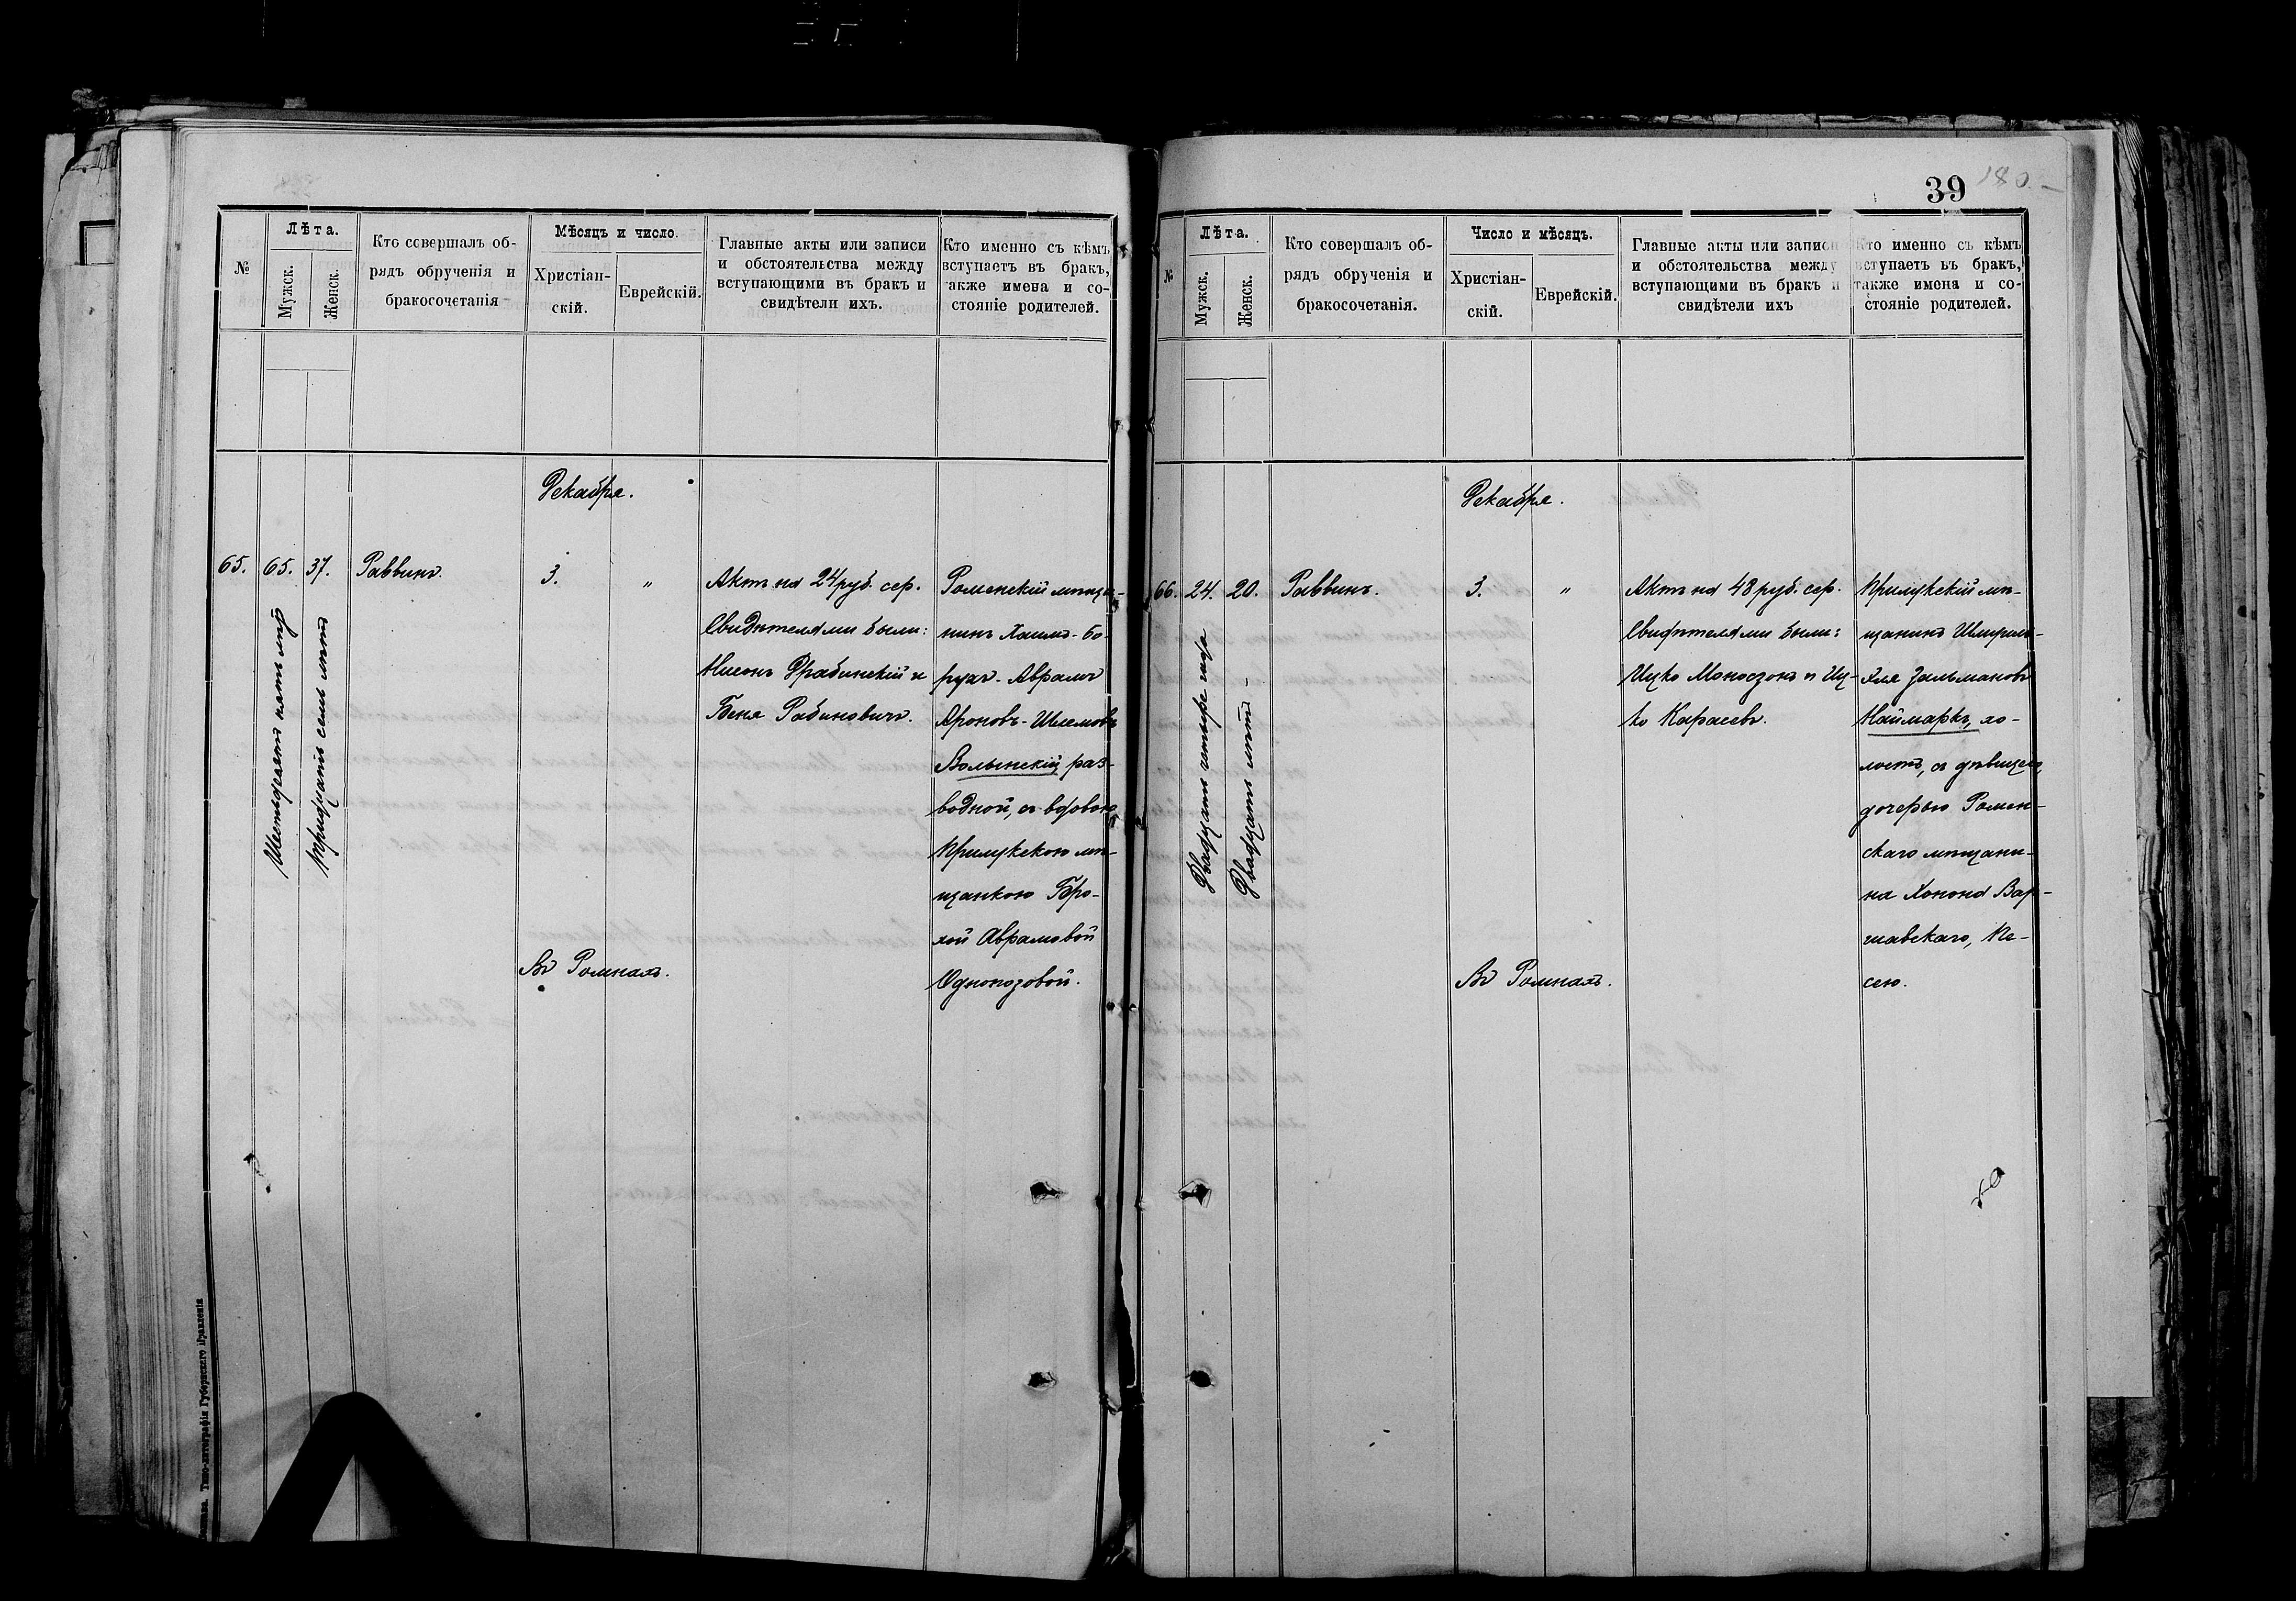 №
Лѣта.
Мужск.
Женск.
Кто совершалъ об-
рядъ обрученія и
бракосочетанія
Мѣсяцъ и число.
Христіан-
скій.
Еврейскій.
Главные акты или записи
и обстоятельства между
вступающими въ бракъ и
свидѣтели ихъ.
Кто именно съ кѣмъ
вступаетъ въ бракъ,
также имена и со-
стояніе родителей.
Декабря.
65.
65.
37.
Шестьдесятъ пять лѣтъ
Тридцать семь лѣтъ
Раввинъ.
3.
"
Въ Ромнахъ.
Актъ на 24 руб. сер.
Свидѣтелями были:
Нисонъ Грабинскій и
Беня Рабиновичъ.
Роменскій мѣща-
нинъ Хаимъ-Бо-
рухъ-Абрамъ
Ароновъ-Шлемовъ
Волынскій, раз-
водной, съ вдовою
Прилукскою мѣ-
щанкою Бро-
хой Абрамовой
Однопозовой.
Типо-литографія Губернскаго Правленія
39
180.
№
Лѣта.
Мужск.
Женск.
Кто совершалъ об-
рядъ обрученія и
бракосочетанія.
Число и мѣсяцъ.
Христіан-
скій.
Еврейскій.
Главные акты или записи
и обстоятельства между
вступающими въ бракъ и
свидѣтели ихъ
Кто именно съ кѣмъ
вступаетъ въ бракъ,
также имена и со-
стояніе родителей.
Декабря.
66.
24.
20.
Двадцать четыре года
Двадцать лѣтъ
Раввинъ.
3.
"
Въ Ромнахъ.
Актъ на 48 руб. сер.
Свидѣтелями были:
Ицко Моносзонъ и Иц-
ко Карасевъ.
Прилукскій мѣ-
щанинъ
Зальмановъ
Наймаркъ, хо-
лостъ, съ дѣвицею,
дочерью Ромен-
скаго мѣщани-
на Хонона Вар-
шавскаго, Пе-
сею.